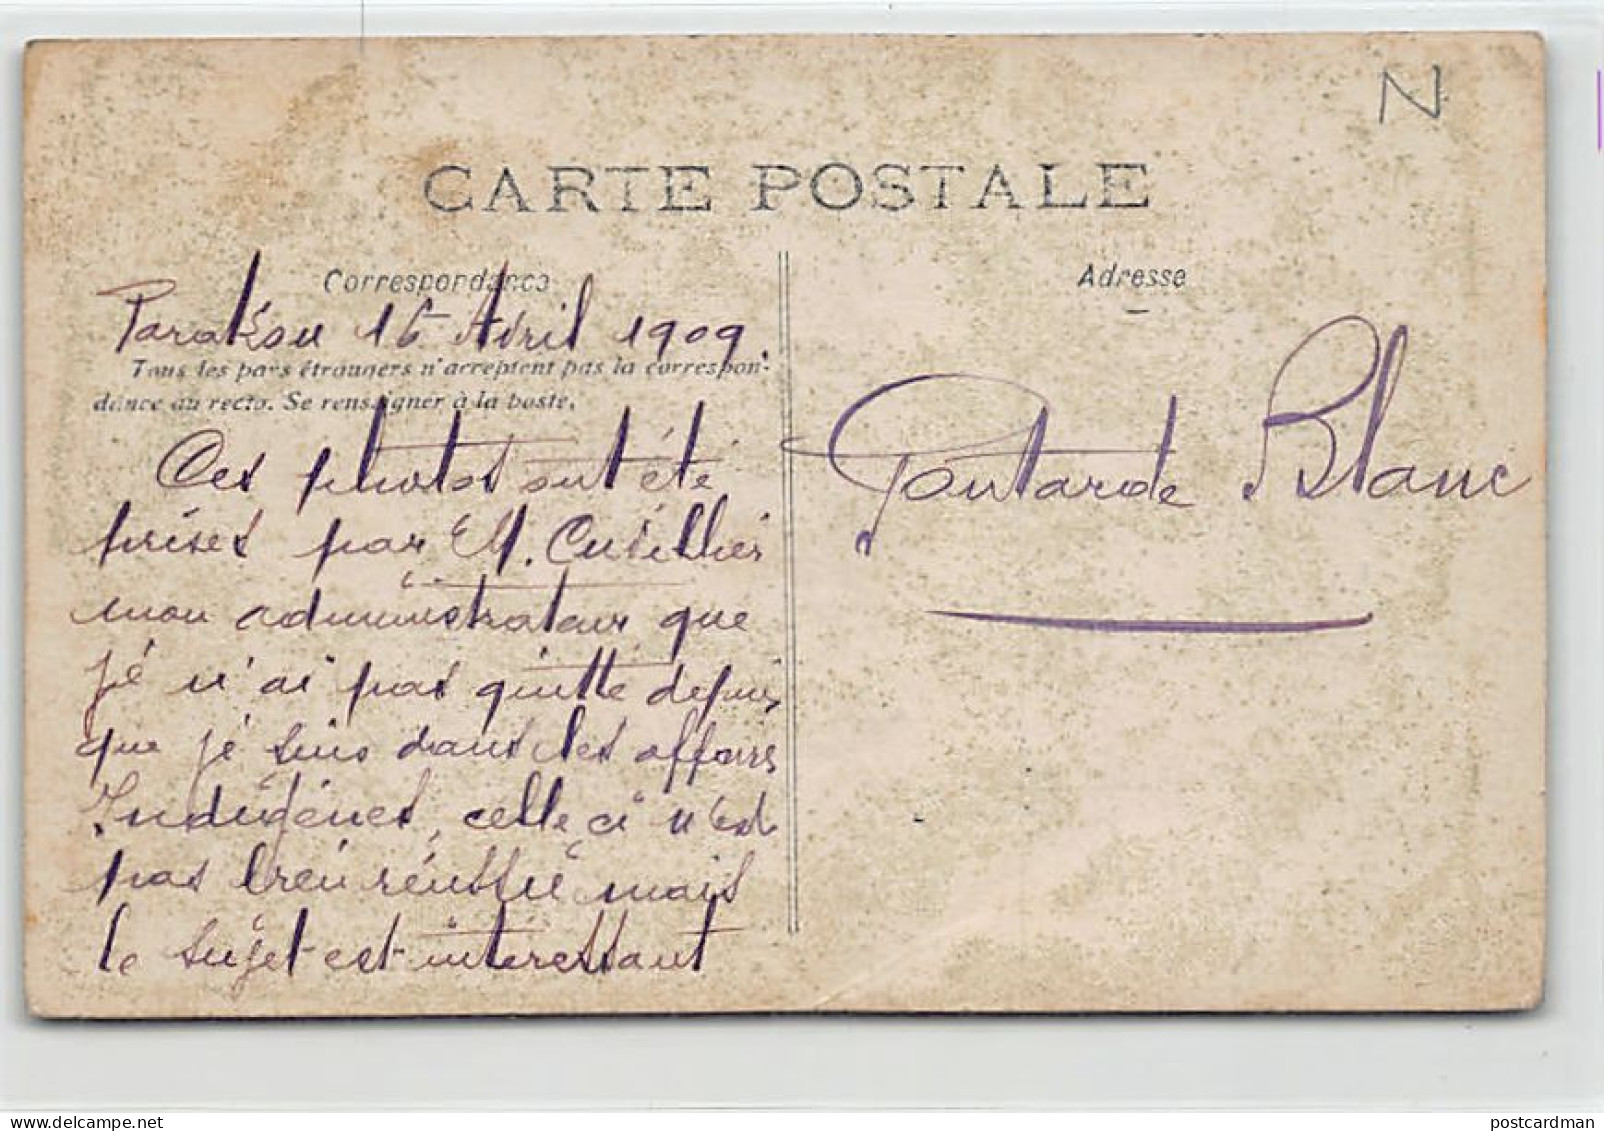 N
CARTE POSTALE
Correspondance
Parakou 16 Avril 1909.
Tous les pays étrangers n'acceptent pas la correspon-
dance au recto. Se renseigner à la poste.
Ces photos ont été
prises par M. Cuvillier
mon administrateur que
je n'ai pas quitté depuis
que je suis dans les affaires
Indigènes, celle ci n'est
pas bien réussie mais
le sujet est intéressant
Adresse
Poutarde Blanc
postcardman